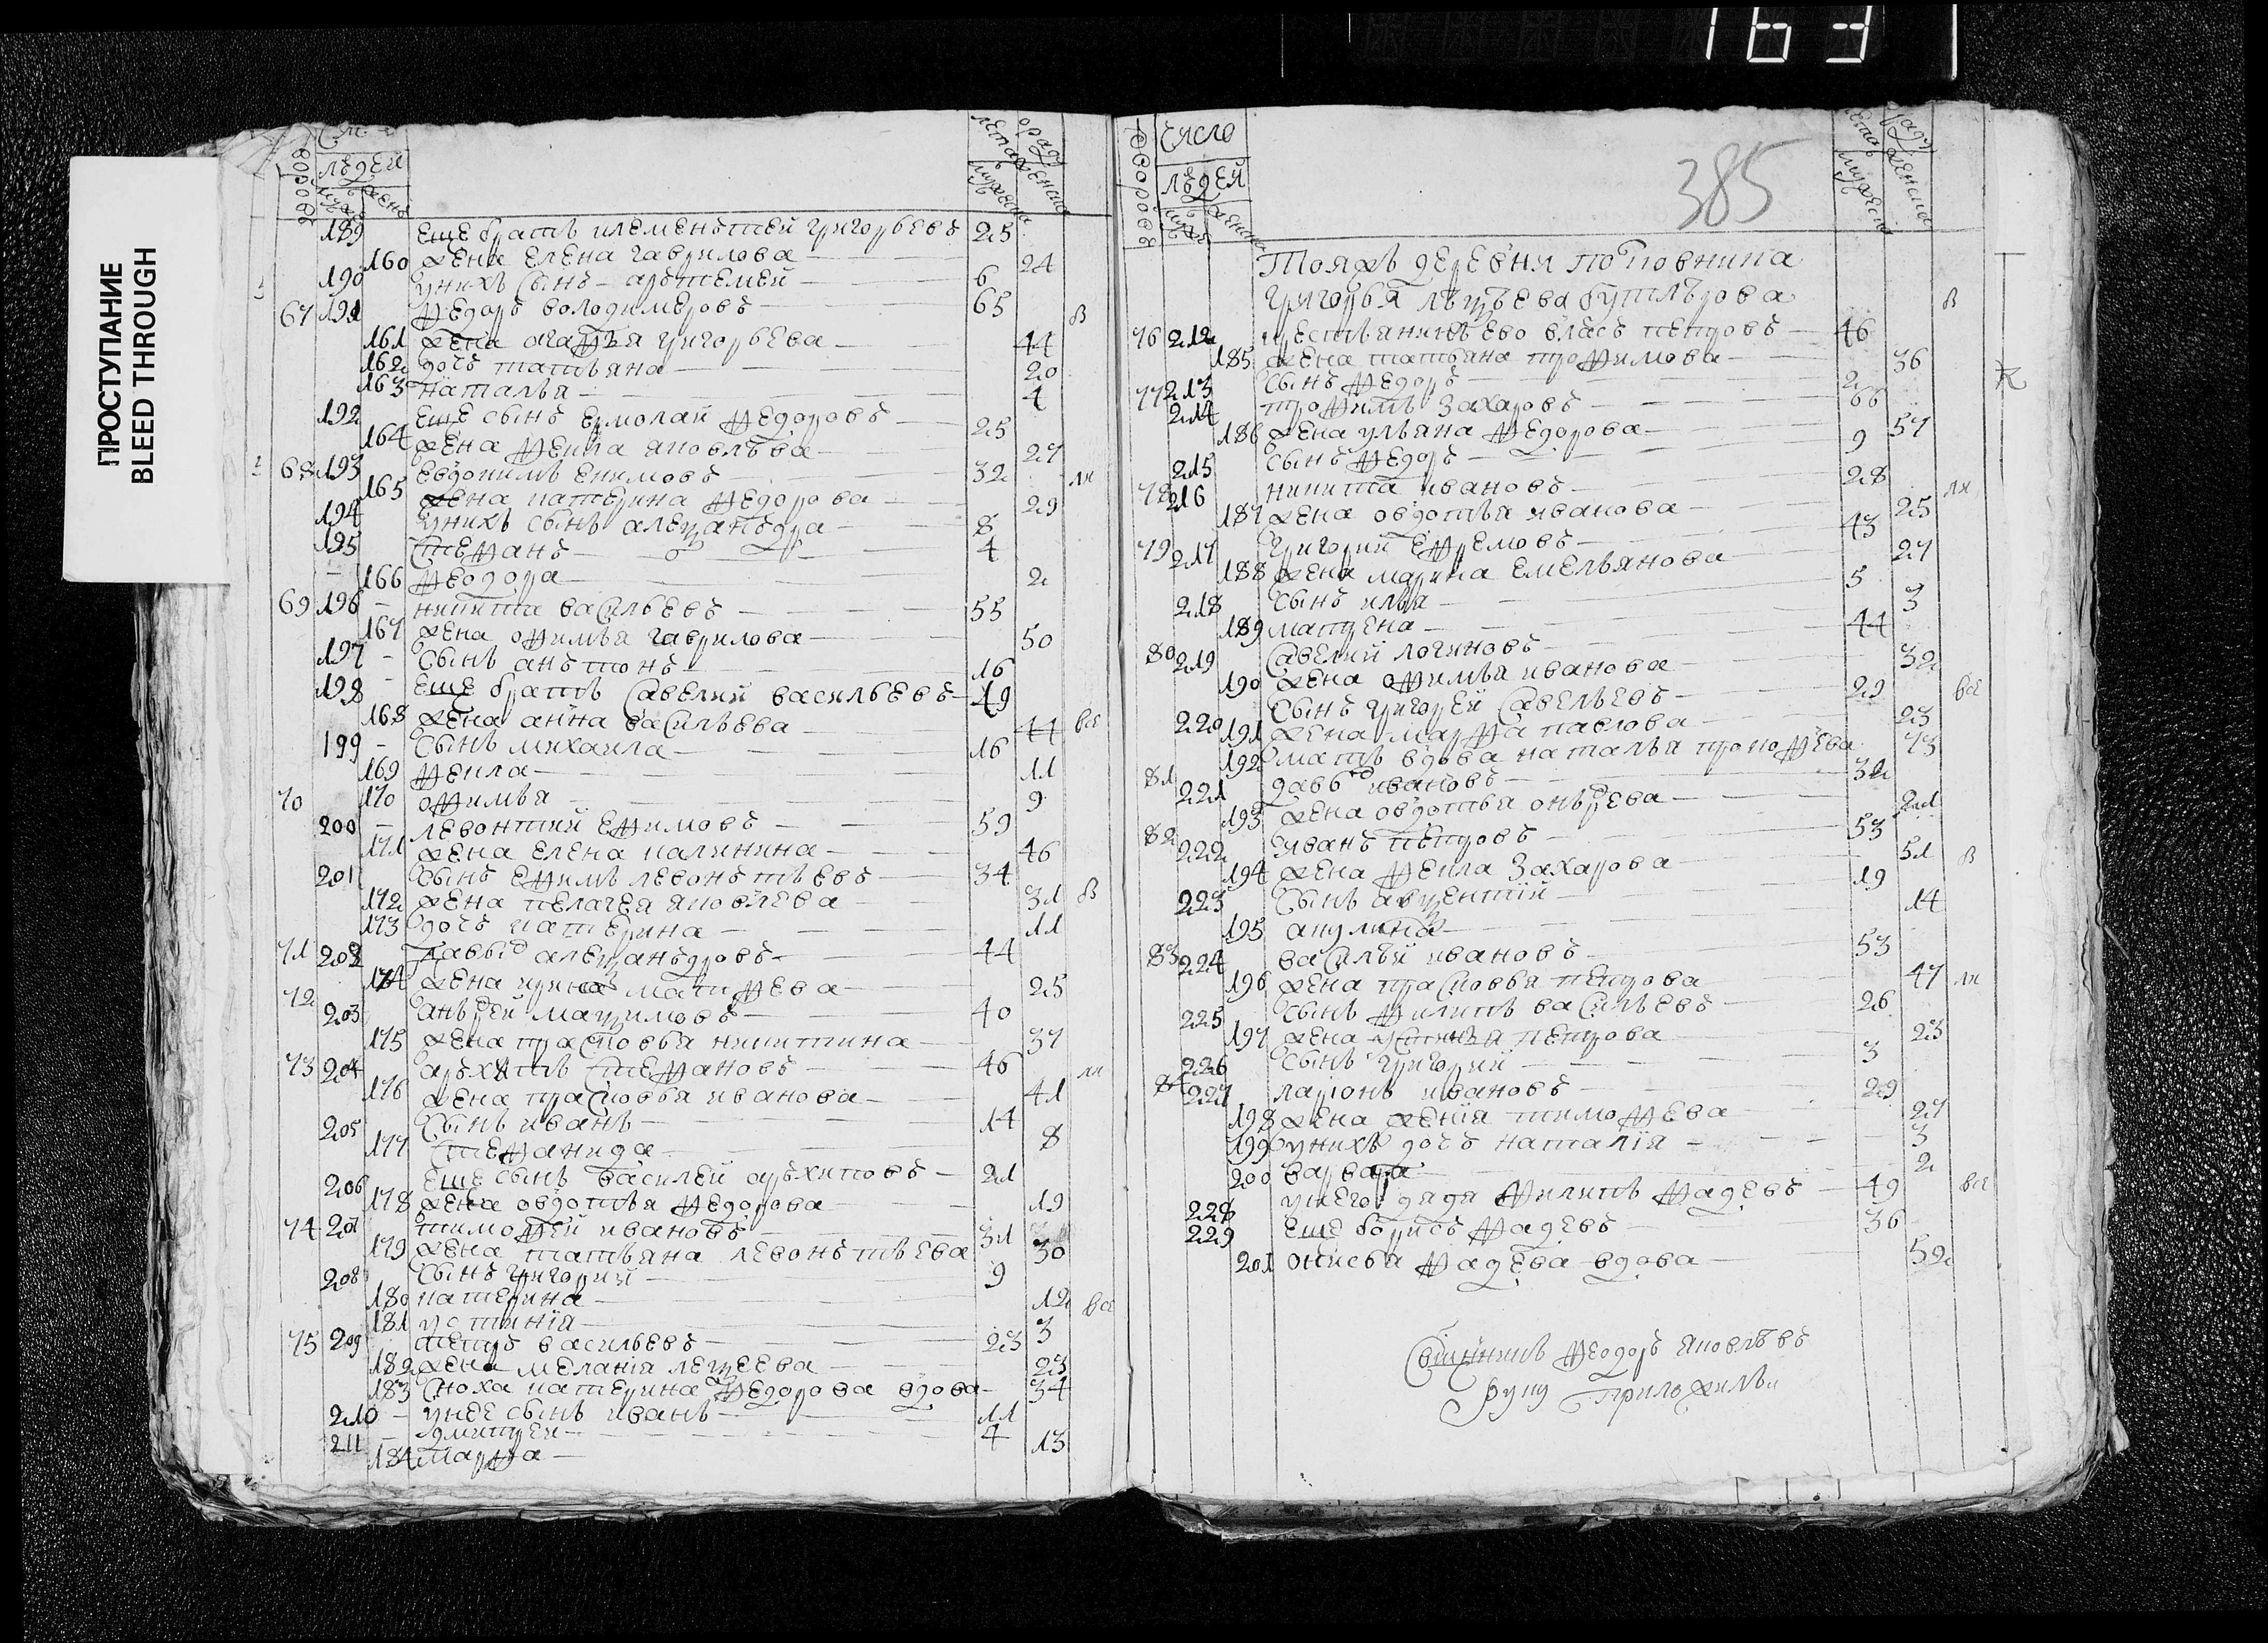 163
ПРОСТУПАНИЕ
BLEED THROUGH
дворовъ
людей
мужеска
женска
189 еще братъ клеменьтей григорьевъ 25
160 жена елена гаврилова 24
190 у нихъ сынъ арьтемей 6
67 191 Ѳедоръ володимеровъ 65 в
161 жена агаѲья григорьева 44
162 дочь татьяна 20
163 наталья 4
192 еще сынъ ермолай Ѳедоровъ 25
164 жена Ѳекла яковлѣва 27
68 193 евдокимъ екимовъ 32 лк
165 жена катерина Ѳедорова 29
194 у нихъ сынъ алеѯаньдра 8
195 стеѲанъ 4
166 Ѳеодора 2
69 196 никита васильевъ 55
167 жена оѲимья гаврилова 50
197 сынъ аньтонъ 16
198 еще братъ савелий васильевъ 49
168 жена анна васильева 44 все
199 сынъ михаила 16
169 Ѳекла 11
70 170 оѲимья 9
200 левонтий еѲимовъ 59
171 жена елена калинина 46
201 сынъ еѲимъ левоньтьевъ 34
172 жена пелагея яковлева 31 в
173 дочь катерина 11
71 202 давыд алеѯаньдровъ 44
174 жена ирина матѲева 25
72 203 аньдрей маѯимовъ 40
175 жена прасковья никитина 37
73 204 арьхипъ стеѲановъ 46 лк
176 жена прасковья иванова 41
205 сынъ иванъ 14
177 стеѲанида 8
206 еще сынъ василей арьхиповъ 21
178 жена овдотья Ѳедорова 19
74 207 тимоѲей ивановъ 31
179 жена татьяна левоньтьева 30
208 сынъ григорий 9
180 катерина 12 все
181 устинїя 3
75 209 петръ васильевъ 23
182 жена меланїя алеѯеева 23
183 сноха катерина Ѳедорова вдова 34
210 у нее сынъ иванъ 11
211 дмитрей 4
184 марѲа 13
385
дворовъ
число
людей
мужеска
женска
Тояжъ деревня половнина
григорья бутлѣрова в
76 212 крестьянинъ ево власъ петровъ 46
185 жена татьяна троѲимова 36
213 сынъ Ѳедоръ 2
77 214 троѲимъ захаровъ 66
186 жена ульяна Ѳедорова 57
215 сынъ Ѳедоръ 9
78 216 никита ивановъ 28 лк
187 жена овдотья иванова 25
79 217 григорий еѲремовъ 43
188 жена марина емельянова 27
218 сынъ илья 5
189 матрена 3
80 219 савелий логиновъ 44
190 жена оѲимья иванова 32
220 сынъ григорей савельевъ 29 все
191 жена марѲа павлова 23
192 мать вдова наталья прокоѲева 73
81 221 давыд ивановъ 32
193 жена овдотья оньдрева 21
82 222 иванъ петровъ 53
194 жена Ѳекла захарова 51 в
223 сынъ авѯентий 19
195 акулина 14
83 224 василѣй ивановъ 53
196 жена прасковья петрова 47 лк
225 сынъ Ѳилипъ васильевъ 26
197 жена устинья петрова 23
226 сынъ григорий 3
84 227 ларионъ ивановъ 29
198 жена ѯенїя тимоѲева 27
199 у нихъ дочь наталїя 3
200 варвара 2
228 у него дядя Ѳилипъ Ѳадевъ 49 все
229 еще борисъ Ѳадевъ 36
201 онисья Ѳадева вдова 52
Свщнникъ Ѳеодоръ яковлѣвъ
руку приложилъ